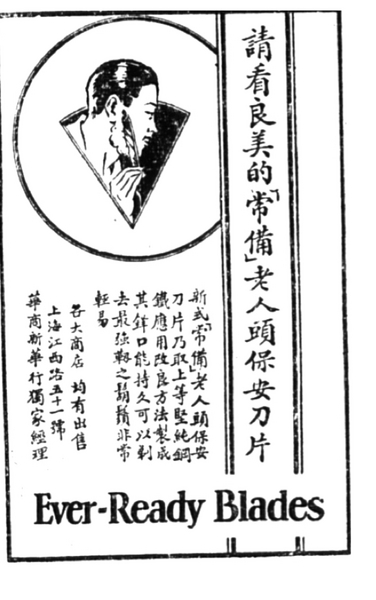 請看良美的「常備」老人頭保安刀片
新式「常備」老人頭保安
刀片乃取上等堅純鋼
鐵應用改良方法製成
其鋒口能持久可以剃
去最強韌之鬍鬚非常
輕易
各大商店均有出售
上海江西路五十一號
華商新華行獨家經理
Ever-Ready Blades